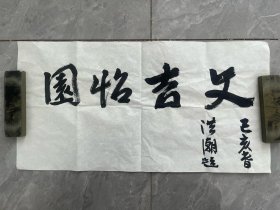 文吉怡園
己亥春
洪潮题